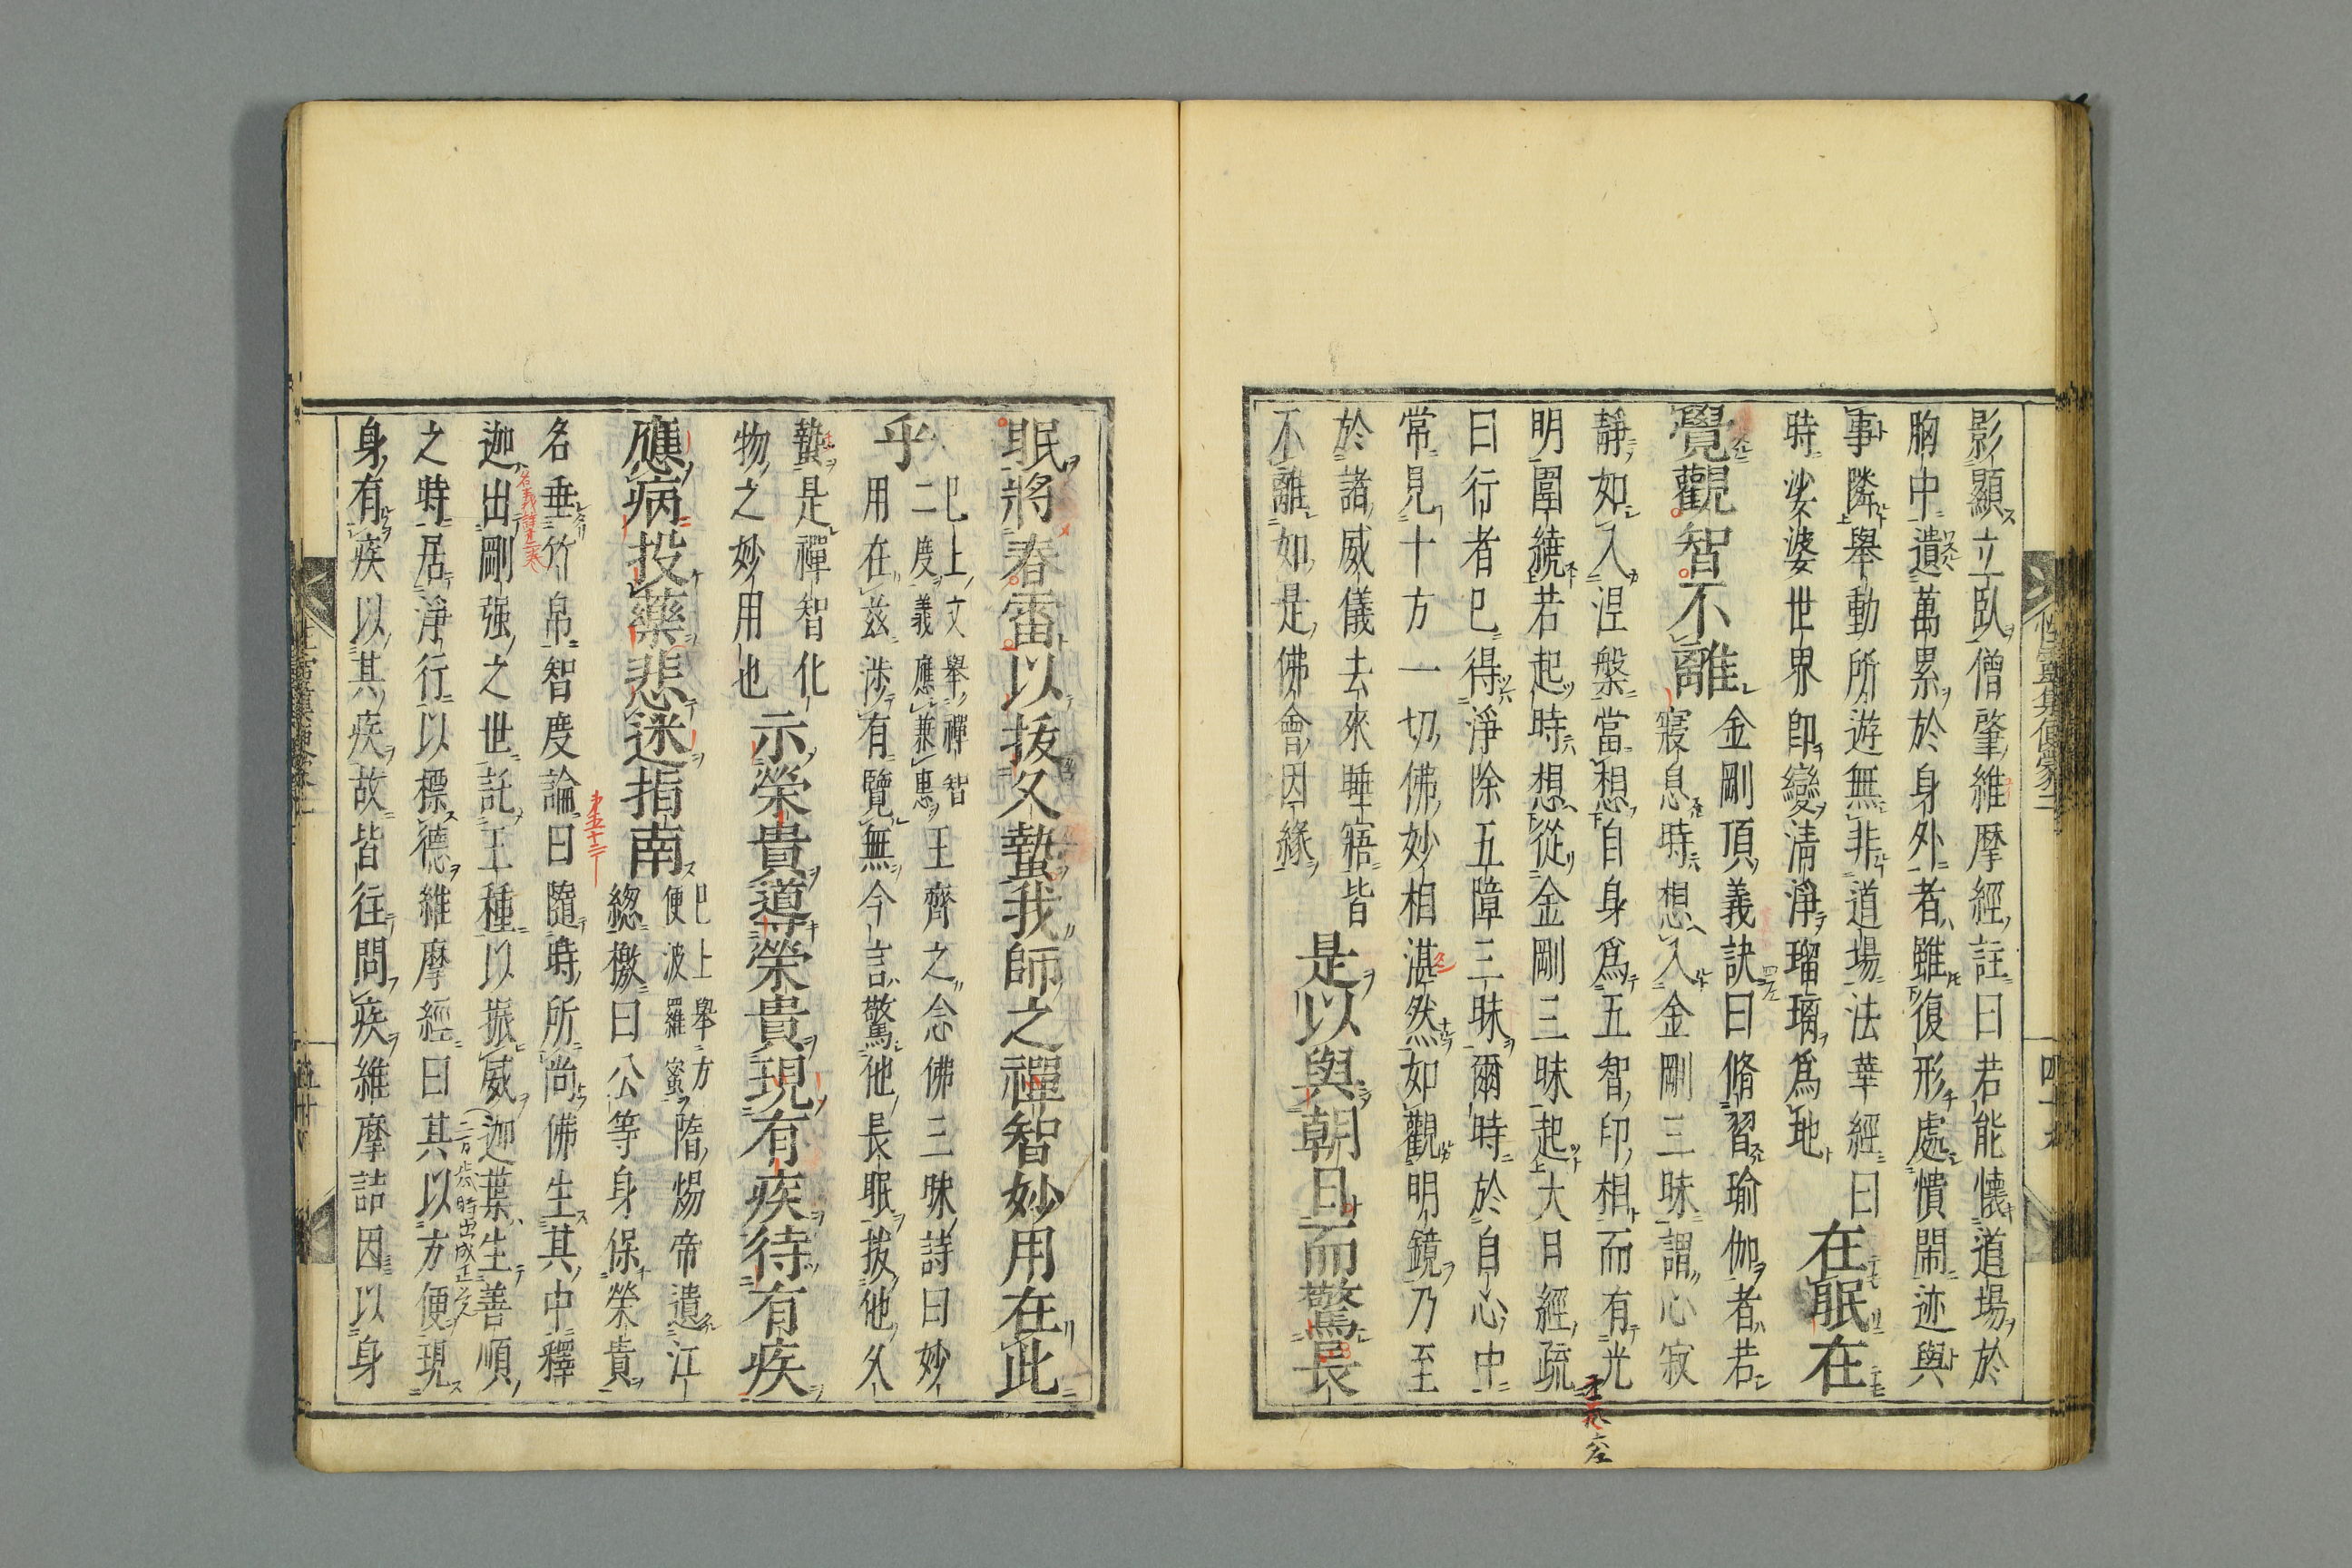 影顯立臥僧肇維摩經註曰若能懷道場於
胸中遺萬累於身外者雖復形處憒閙迹與
事隣舉動所遊無非道場法華經曰
時娑婆世界卽變淸淨瑠璃爲地
在眠在
覺觀智不離
金剛頂義訣曰脩習瑜伽者若
寢息時想入金剛三昧謂心寂
靜如入涅槃當想自身爲五智印相而有光
明圍繞若起時想從金剛三昧起大日經疏
曰行者已得淨除五障三昧爾時於自心中
常見十方一切佛妙相湛然如觀明鏡乃至
於諸威儀去來睡寤皆
不離如是佛會因緣
是以與朝日而驚長
眠將春雷以拔久蟄我師之禪智妙用在此
乎
已上文舉禪智
二度義應兼惠
王齊之念佛三昧詩曰妙
用在茲涉有覽無今言驚他長眠拔他久
蟄是禪智化
物之妙用也
示榮貴導榮貴現有疾待有疾
應病投藥悲迷指南
已上舉方
便波羅蜜
隋煬帝遺江
總檄曰公等身保榮貴
名垂竹帛智度論曰隨時所尚佛生其中釋
迦出剛强之世託王種以振威迦葉生善順
之時居淨行以標德維摩經曰其以方便現
身有疾以其疾故皆往問疾維摩詰因以身